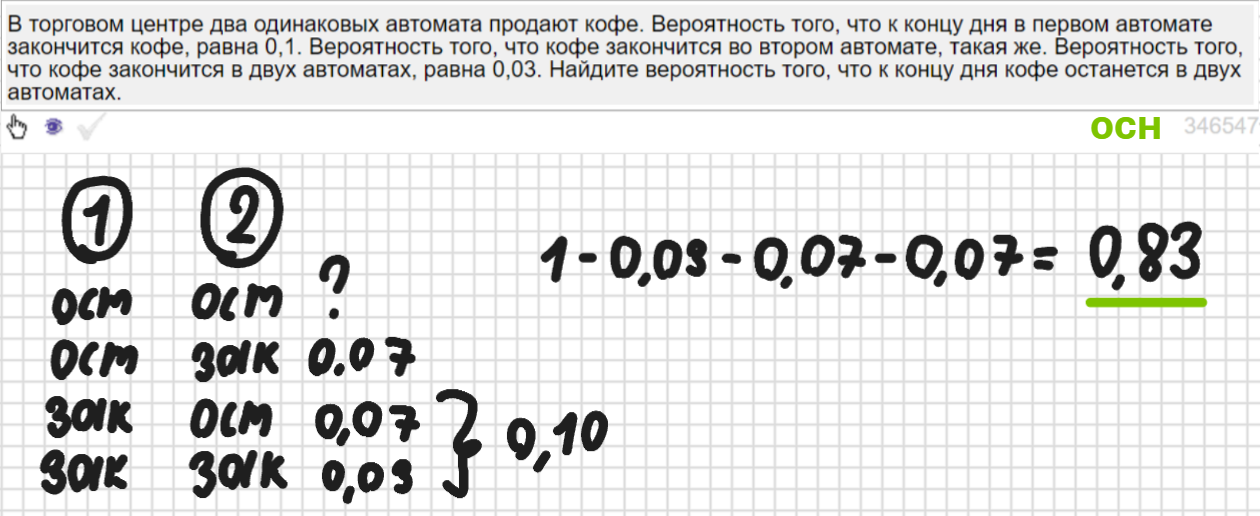 В торговом центре два одинаковых автомата продают кофе. Вероятность того, что к концу дня в первом автомате
закончится кофе, равна 0,1. Вероятность того, что кофе закончится во втором автомате, такая же. Вероятность того,
что кофе закончится в двух автоматах, равна 0,03. Найдите вероятность того, что к концу дня кофе останется в двух
автоматах.
ОСН 346547
1 2
ост ост ?
ост зак 0.07
зак ост 0,07
зак зак 0,03
} 0,10
1-0,03-0,07-0,07= 0,83